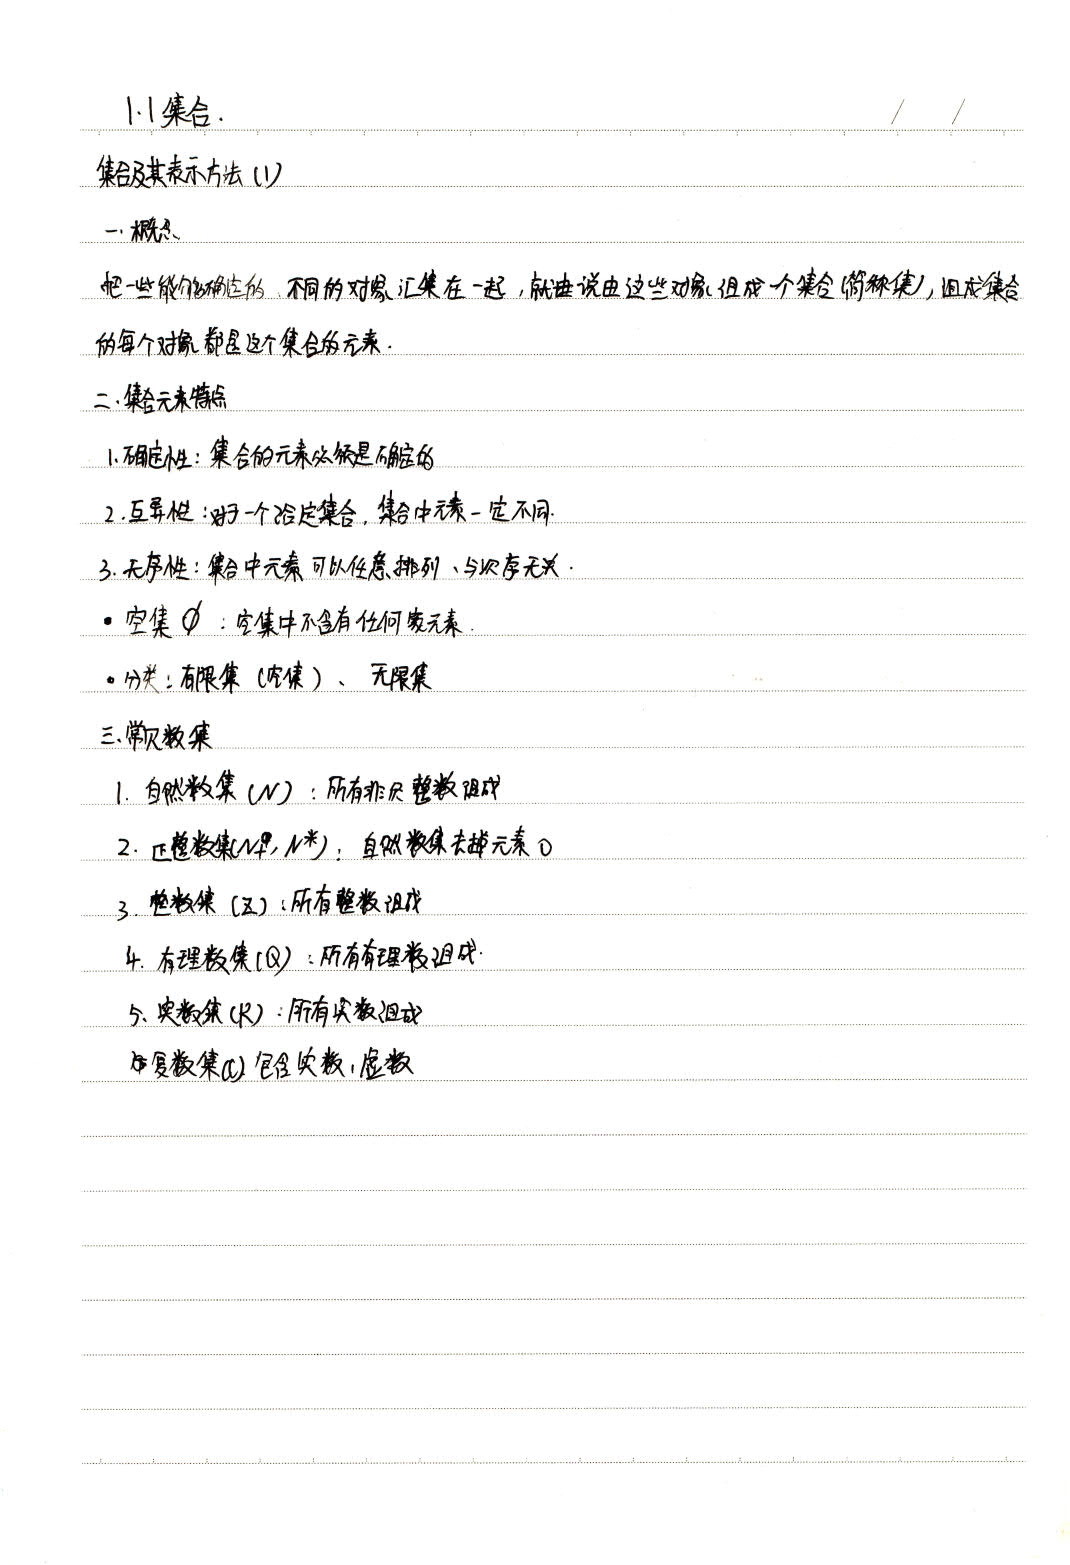 1.1集合.
集合及其表示方法(1)
一.概念
把一些能够确定的、不同的对象汇集在一起,就说由这些对象组成一个集合(简称集),组成集合
的每个对象都是这个集合的元素.
二.集合元素特点
1.确定性:集合的元素必须是确定的
2.互异性:对于一个给定集合,集合中元素一定不同.
3.无序性:集合中元素可以任意排列、与次序无关.
•空集∅:空集中不含有任何元素.
•分类:有限集(空集)、无限集
三.常见数集
1.自然数集(N):所有非负整数组成
2.正整数集(N+,N*):自然数集去掉元素0
3.整数集(Z):所有整数组成
4.有理数集(Q):所有有理数组成.
5.实数集(R):所有实数组成
复数集(C)包含实数,虚数